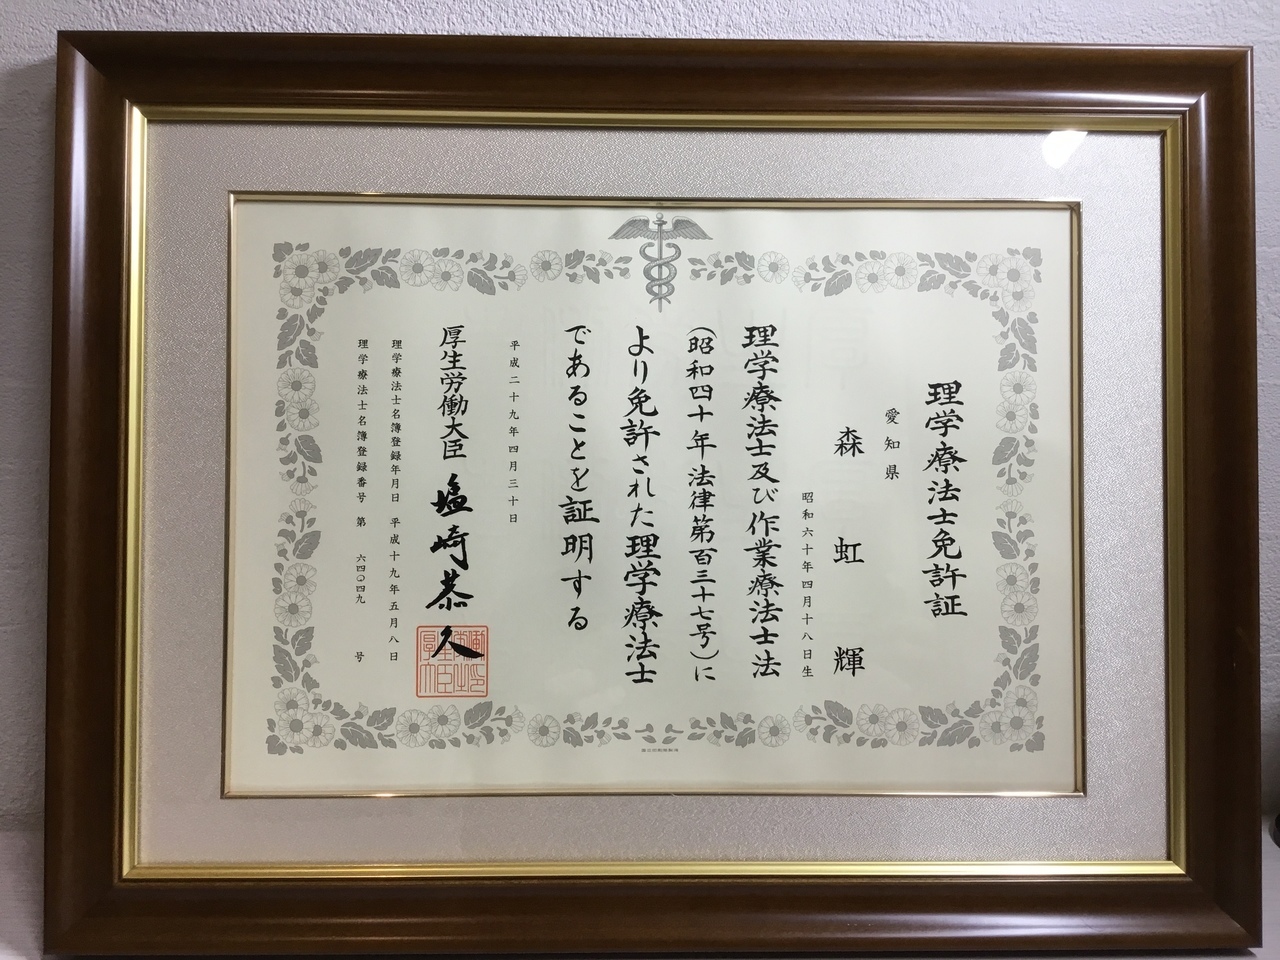 理学療法士免許証
愛知県
森虹輝
昭和六十年四月十八日生
理学療法士及び作業療法士法
(昭和四十年法律第百三十七号)に
より免許された理学療法士
であることを証明する
平成二十九年四月三十日
厚生労働大臣 塩崎恭久
理学療法士名簿登録年月日 平成十九年五月八日
理学療法士名簿登録番号 第 六四〇四九 号